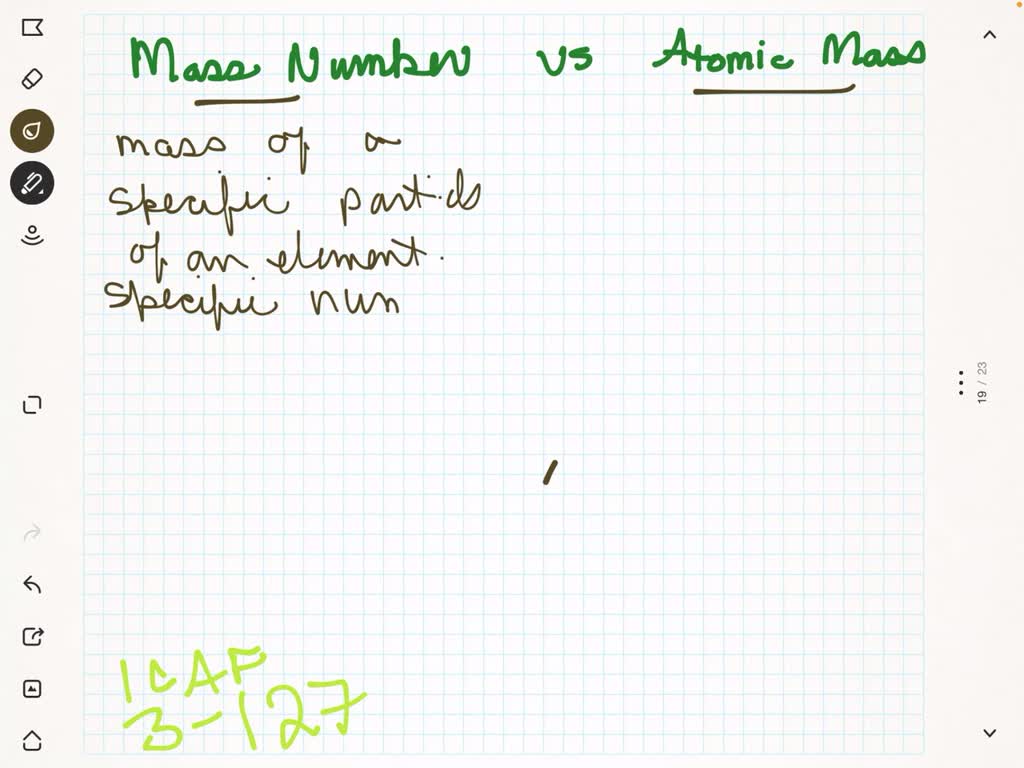 Mass Number vs Atomic Mass
mass of a
specific particls
of an element.
specific num
1CAF
3-127
19 / 23